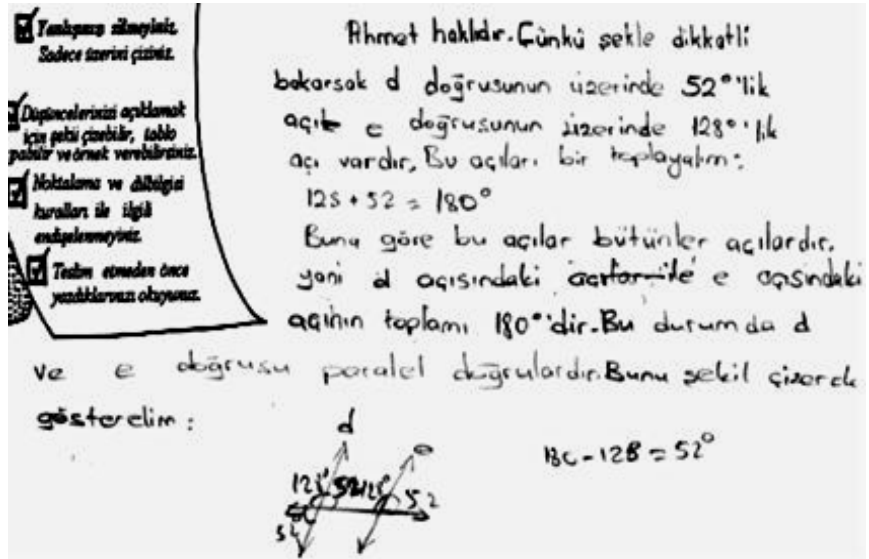 Yanlışınızı silmeyiniz.
Sadece üzerini çiziniz.
Düşüncelerinizi açıklamak
için şekil çizebilir, tablo
yapabilir ve örnek verebilirsiniz.
Noktalama ve dilbilgisi
kuralları ile ilgili
endişelenmeyiniz.
Teslim etmeden önce
yazdıklarınızı okuyunuz.
Ahmet haklıdır. Çünkü şekle dikkatli
bakarsak d doğrusunun üzerinde 52°'lik
açı e doğrusunun üzerinde 128°'lik
açı vardır, Bu açıları bir toplayalım:
128 + 52 = 180°
Buna göre bu açılar bütünler açılardır.
yani d açısındaki açılar ile e açısındaki
açının toplamı 180°'dir. Bu durumda d
ve e doğrusu paralel doğrulardır. Bunu şekil çizerek
gösterelim:
d e
128° 52 128° 52
52
180 - 128 = 52°